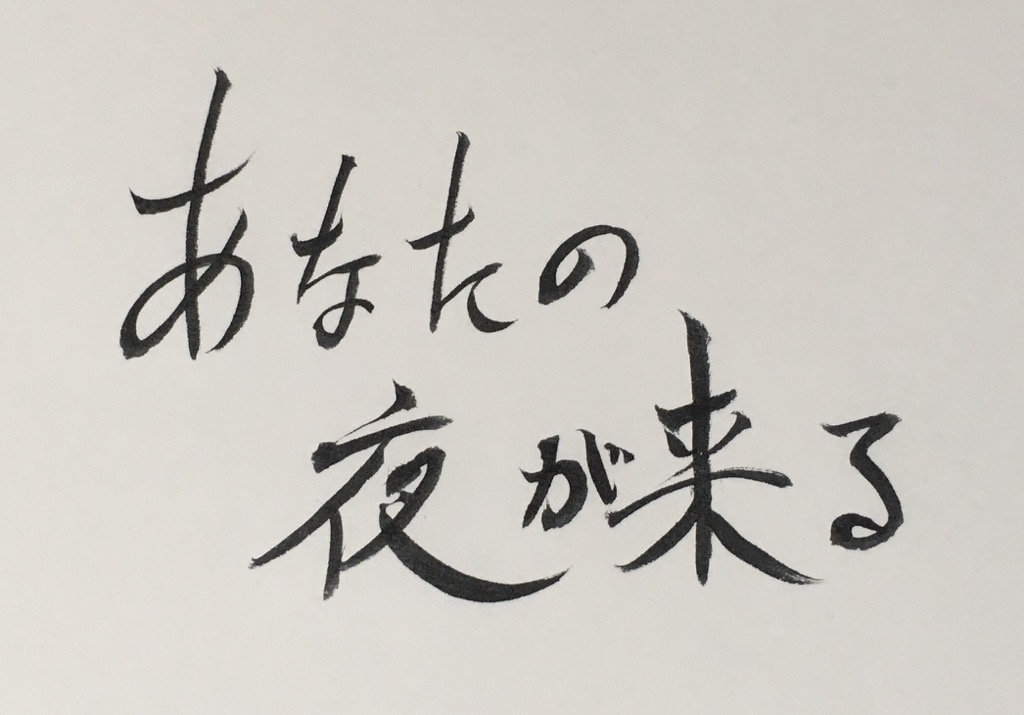 あなたの
夜が来る